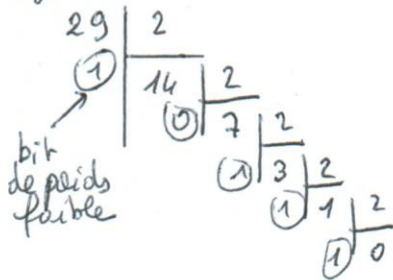 29 2
1 14 2
0 7 2
1 3 2
1 1 2
1 0
bit
de poids
faible